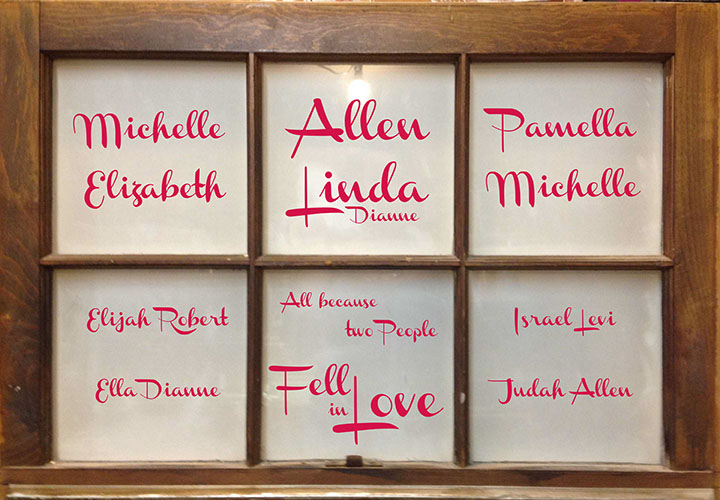 Michelle
Elizabeth
Allen
Linda
Dianne
Pamella
Michelle
Elijah Robert
Ella Dianne
All because
two People
Fell
in Love
Israel Levi
Judah Allen